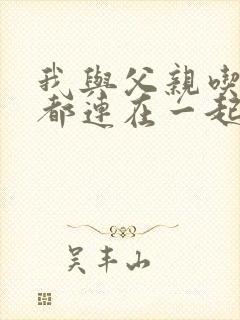 我與父親喫
都連在一起
吳丰山